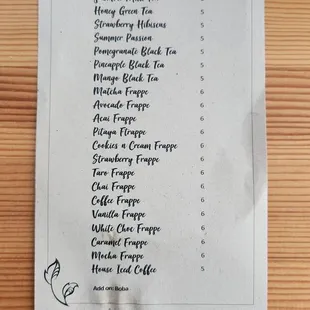 Honey Green Tea 5
Strawberry Hibiscus 5
Summer Passion 5
Pomegranate Black Tea 5
Pineapple Black Tea 5
Mango Black Tea 5
Matcha Frappe 6
Avocado Frappe 6
Acai Frappe 6
Pitaya Ftrappe 6
Cookies n Cream Frappe 6
Strawberry Frappe 6
Taro Frappe 6
Chai Frappe 6
Coffee Frappe 6
Vanilla Frappe 6
White Choc Frappe 6
Caramel Frappe 6
Mocha Frappe 6
House Iced Coffee 5
Add on: Boba